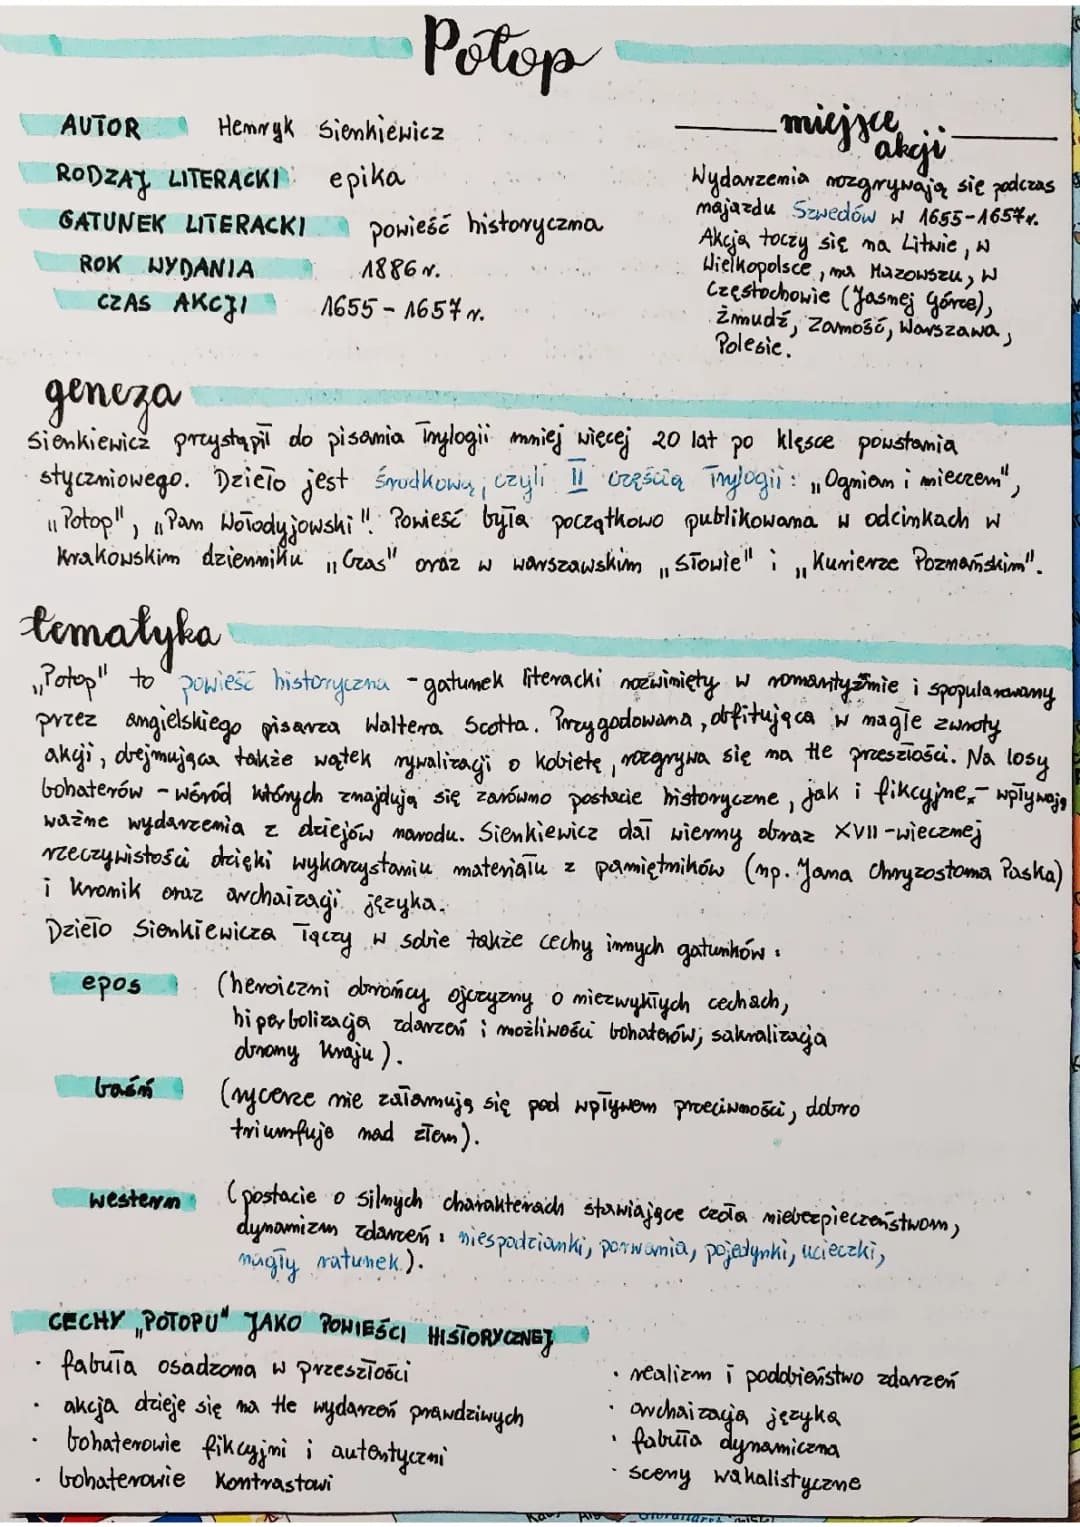 Potop
AUTOR Henryk Sienkiewicz
RODZAJ LITERACKI: epika
GATUNEK LITERACKI powieść historyczna
ROK WYDANIA 1886 r.
CZAS AKCJI 1655 - 1657 r.
miejsce
akcji
Wydarzenia rozgrywają się podczas
najazdu Szwedów w 1655-1657r.
Akcja toczy się na Litwie, w
Wielkopolsce, na Mazowszu, w
Częstochowie (Jasnej Górze),
Żmudź, Zamość, Warszawa,
Polesie.
geneza
Sienkiewicz przystąpił do pisania Trylogii mniej więcej 20 lat po klęsce powstania
styczniowego. Dzieło jest środkową, czyli II częścią Trylogii: „Ogniem i mieczem",
„Potop", „Pan Wołodyjowski". Powieść była początkowo publikowana w odcinkach w
krakowskim dzienniku „Czas" oraz w warszawskim „Słowie" i „Kurierze Poznańskim".
tematyka
„Potop" to powieść historyczna - gatunek literacki rozwinięty w romantyzmie i spopularowany
przez angielskiego pisarza Waltera Scotta. Przygodowana, obfitująca w nagłe zwroty
akcji, obejmująca także wątek rywalizacji o kobietę, rozgrywa się na tle przeszłości. Na losy
bohaterów - wśród których znajdują się zarówno postacie historyczne, jak i fikcyjne, - wpływają
ważne wydarzenia z dziejów narodu. Sienkiewicz dał wierny obraz XVII-wiecznej
rzeczywistości dzięki wykorzystaniu materiału z pamiętników (np. Jana Chryzostoma Paska)
i kronik oraz archaizacji języka.
Dzieło Sienkiewicza łączy w sobie także cechy innych gatunków:
epos (heroiczni obrońcy ojczyzny o niezwykłych cechach,
hiperbolizacja zdarzeń i możliwości bohaterów; sakralizacja
obrony kraju).
baśń (rycerze nie załamują się pod wpływem przeciwności, dobro
triumfuje nad złem).
western (postacie o silnych charakterach stawiające czoła niebezpieczeństwom,
dynamizm zdarzeń: niespodzianki, porwania, pojedynki, ucieczki,
nagły ratunek).
CECHY „POTOPU" JAKO POWIEŚCI HISTORYCZNEJ
· fabuła osadzona w przeszłości
· akcja dzieje się na tle wydarzeń prawdziwych
· bohaterowie fikcyjni i autentyczni
· bohaterowie kontrastowi
· realizm i podobieństwo zdarzeń
· archaizacja języka
· fabuła dynamiczna
· sceny wakalistyczne